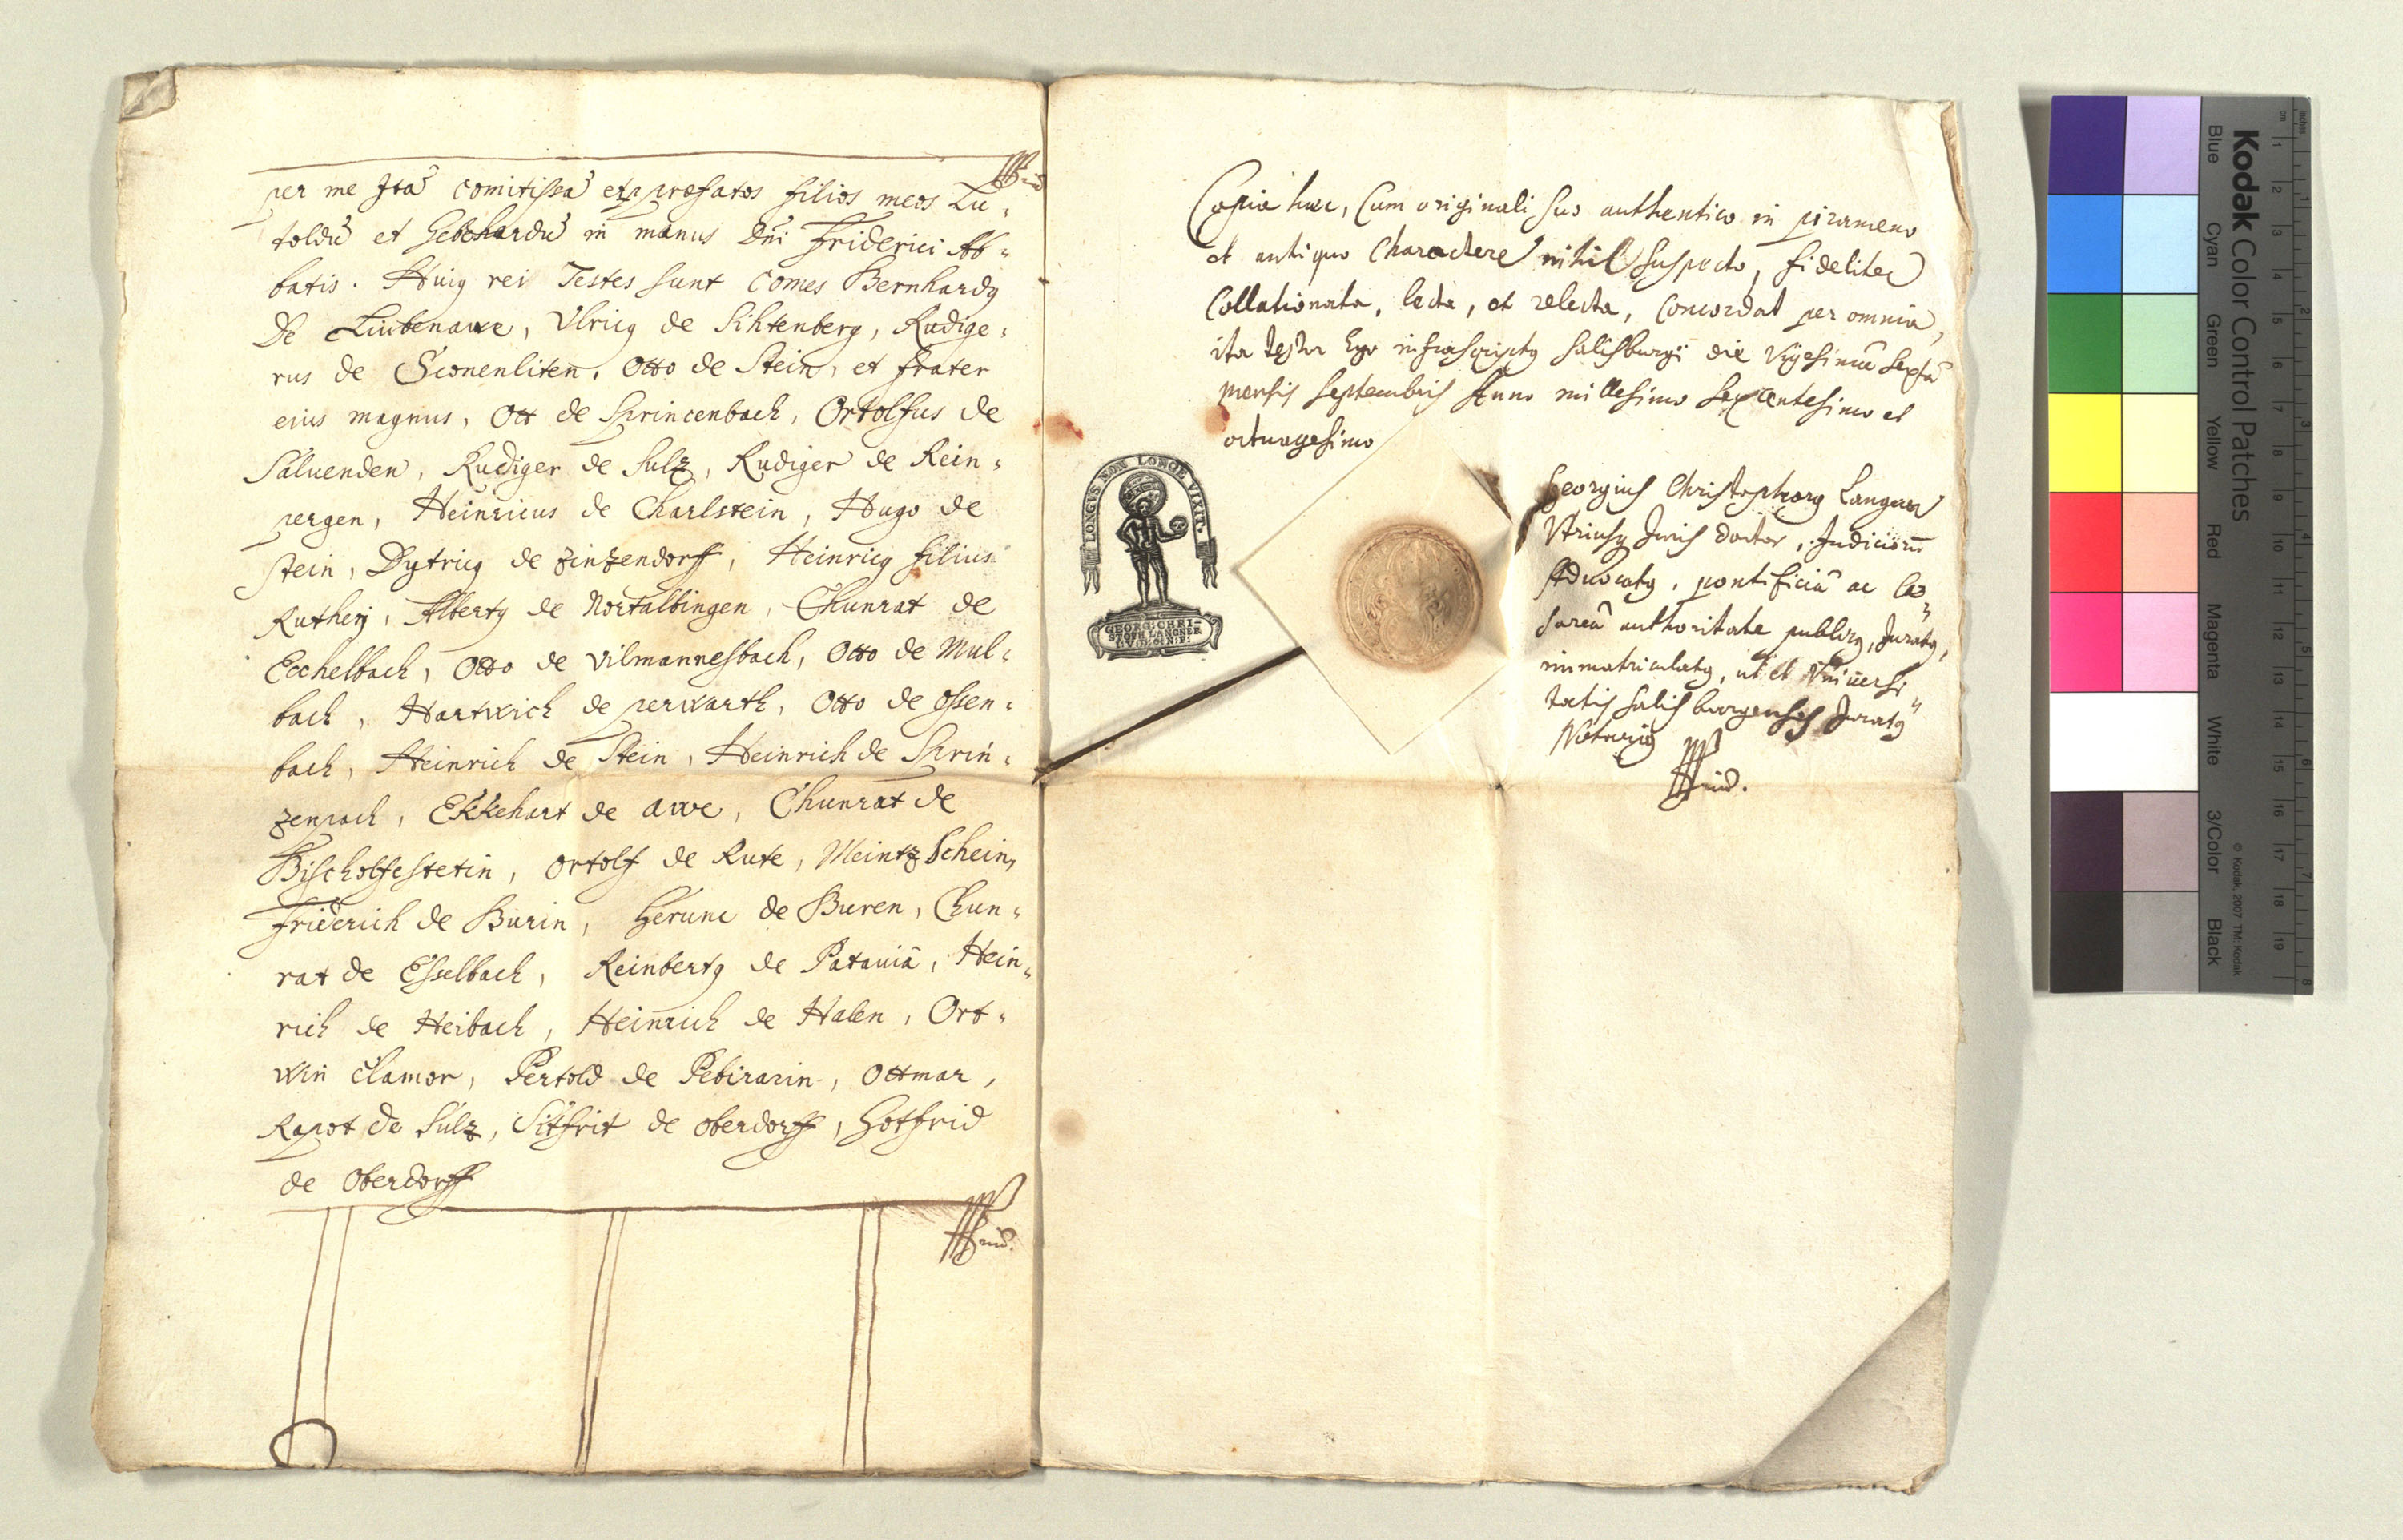 per me Ità comitissà et præfatos filios meos Lu-
toldū et Gebehardū in manus Dn̄i Friderici Ab-
batis. Huiꝰ rei Testes sunt Comes Bernhardꝰ
De Liubenawe, Ulricꝰ de Sihtenberg, Rudige-
rus de Sconenliten, Otto de Stein, et frater
eius magnus, Ott de Sprincenbach, Ortolfus de
Saluenden, Rudiger de Sulz, Rudiger de Rein-
pergen, Heinricus de Charlstein, Hugo de
Stein, Dytricꝰ de Zinzendorff, Heinricꝰ filius
Rutherj, Albertꝰ de Nortalbingen, Chunrat de
Ecchelbach, Otto de Vilmannesbach, Otto de Mul-
bach, Hartwich de perwarth, Otto de Ossen-
bach, Heinrich de Stein, Heinrich de Sprin-
zenpach, Ekkehart de awe, Chunrat de
Bischolfestetin, Ortolf de Rute, Meintz Schein,
Friderich de Burin, Gerunc de Buren, Chun-
rat de Esselbach, Reinbertꝰ de Patauiâ, Hein-
rich de Heibach, Heinrich de Halen, Ort-
win Clamor, Pertold de Pebirarin, Ottmar,
Rapot de Sulz, Sitfrit de oberdorff, Gotfrid
de Oberdorff
Copia hæc, Cum originali suo authentico in pirameno
et antiquo Charactere nihil suspecto, fideliter
Collationata, lecta, et relecta, Concordat per omnia,
ita testor Ego infrascriptꝰ Salisburgi die Vigesimâ Sextâ
mensis Septembris Anno millesimo Sexcentesimo et
octuagesimo
LONGVS NON LONGE VIXIT.
GEORG: CHRI-
STOPH LANGNER
I: V: D: et N: P:
Georgius Christophorꝰ Langner
Vtriusqꝫ Juris Doctor, Judiciorū
Aduocatꝰ, pontificiâ ac Cæ-
sareâ authoritate publicꝰ, Juratꝰ,
immatriculatꝰ, ut et Vniuersi-
tatis Salisburgensis Juratꝰ
Notariꝰ
mp.
Kodak Color Control Patches
Blue Cyan Green Yellow Red Magenta White 3/Color Black
© Kodak, 2007 TM: Kodak
cm 1 2 3 4 5 6 7 8 9 10 11 12 13 14 15 16 17 18 19
inches 1 2 3 4 5 6 7 8